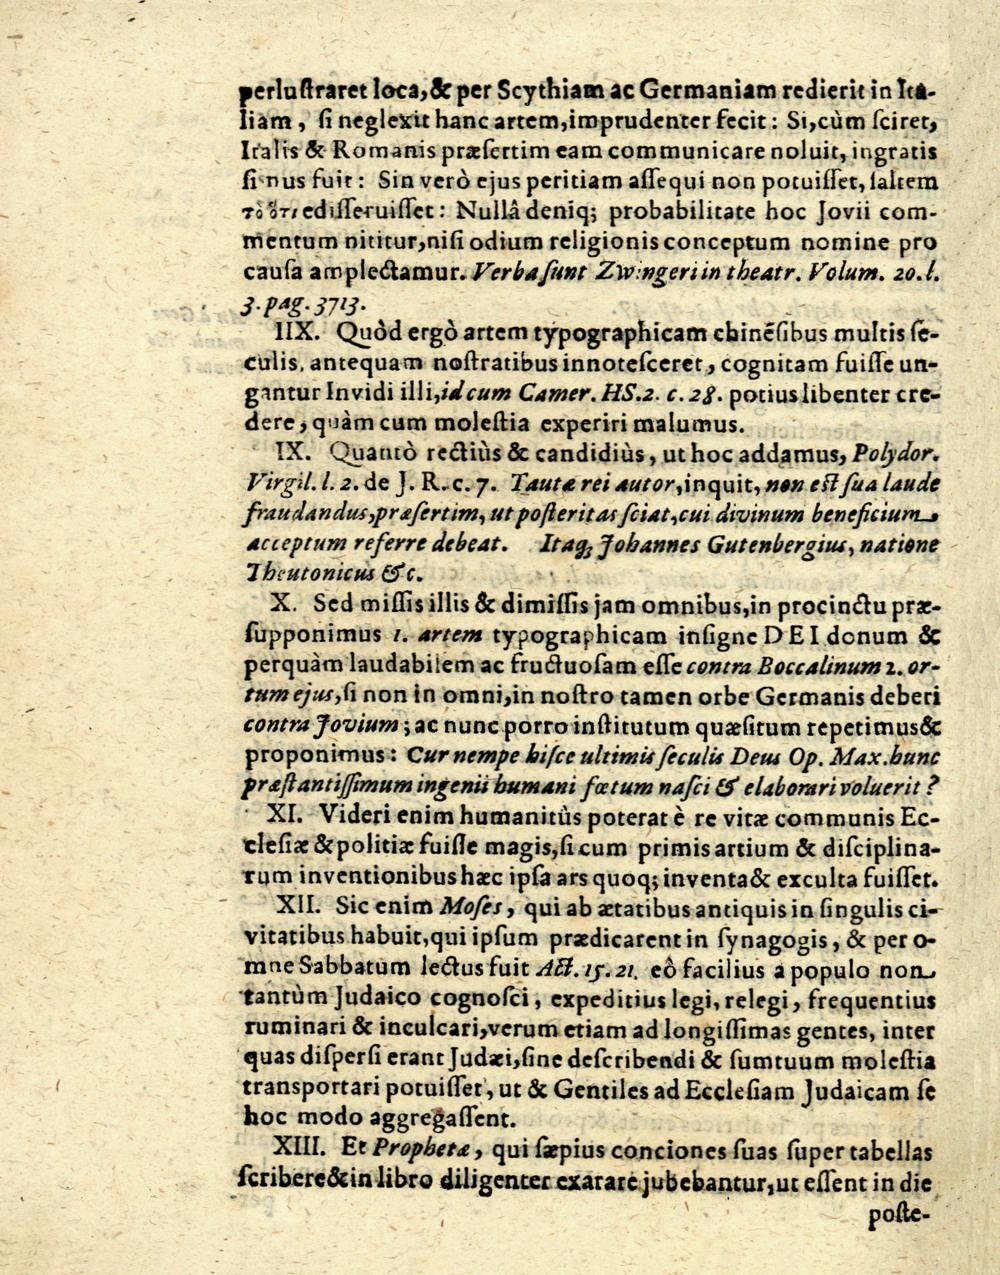 perluſtraret loca,& per Scythiam ac Germaniam redierit in Ita-
liam, ſi neglexit hanc artem,imprudenter fecit: Si,cùm ſciret,
Italis & Romanis præſertim eam communicare noluit, ingratis
ſi nus fuit: Sin verò ejus peritiam aſſequi non potuiſſet, ſaltem
τὸ ὅτι ediſſeruiſſet: Nullâ deniq; probabilitate hoc Jovii com-
mentum nititur,niſi odium religionis conceptum nomine pro
cauſa amplectamur. Verba ſunt Zwingeri in theatr. Volum. 20. l.
3. pag. 3713.
IIX. Quòd ergò artem typographicam chinẽſibus multis ſe-
culis, antequam noſtratibus innoteſceret, cognitam fuiſſe un-
gantur Invidi illi, id cum Camer. HS. 2. c. 28. potius libenter cre-
dere, quàm cum moleſtia experiri malumus.
IX. Quantò rectiùs & candidiùs, ut hoc addamus, Polydor.
Virgil. l. 2. de J. R. c. 7. Tautæ rei autor,inquit, non eſt ſua laude
fraudandus,præſertim, ut poſteritas ſciat, cui divinum beneficium
acceptum referre debeat. Itaq; Johannes Gutenbergius, natione
Theutonicus &c.
X. Sed miſſis illis & dimiſſis jam omnibus,in procinctu præ-
ſupponimus 1. artem typographicam inſigne DEI donum &
perquàm laudabilem ac fructuoſam eſſe contra Boccalinum 2. or-
tum ejus,ſi non in omni,in noſtro tamen orbe Germanis deberi
contra Jovium; ac nunc porro inſtitutum quæſitum repetimus&
proponimus: Cur nempe hiſce ultimis ſeculis Deus Op. Max. hunc
præſtantiſſimum ingenii humani fœtum naſci & elaborari voluerit?
XI. Videri enim humanitùs poterat è re vitæ communis Ec-
cleſiæ & politiæ fuiſſe magis,ſi cum primis artium & diſciplina-
rum inventionibus hæc ipſa ars quoq; inventa & exculta fuiſſet.
XII. Sic enim Moſes, qui ab ætatibus antiquis in ſingulis ci-
vitatibus habuit,qui ipſum prædicarent in ſynagogis, & per o-
mne Sabbatum lectus fuit Act. 15. 21. eô facilius a populo non
tantùm Judaico cognoſci, expeditius legi, relegi, frequentius
ruminari & inculcari,verum etiam ad longiſſimas gentes, inter
quas diſperſi erant Judæi,ſine deſcribendi & ſumtuum moleſtia
transportari potuiſſet, ut & Gentiles ad Eccleſiam Judaicam ſe
hoc modo aggregaſſent.
XIII. Et Prophetæ, qui ſæpius conciones ſuas ſuper tabellas
ſcribere & in libro diligenter exarare jubebantur,ut eſſent in die
poſte-